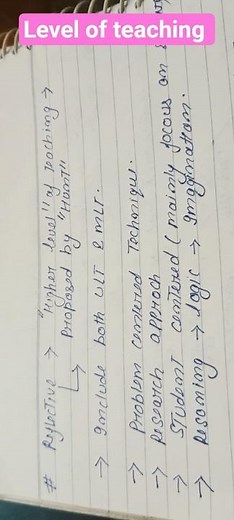 Level of teaching
# Reflective → "Higher level" of teaching →
↳ Proposed by "Hunt"
→ Include both ULT & MLT.
→ Problem centered Technique.
→ Research approch
→ STudent centered (mainly focous on
→ Resoning → logic → Imagination.